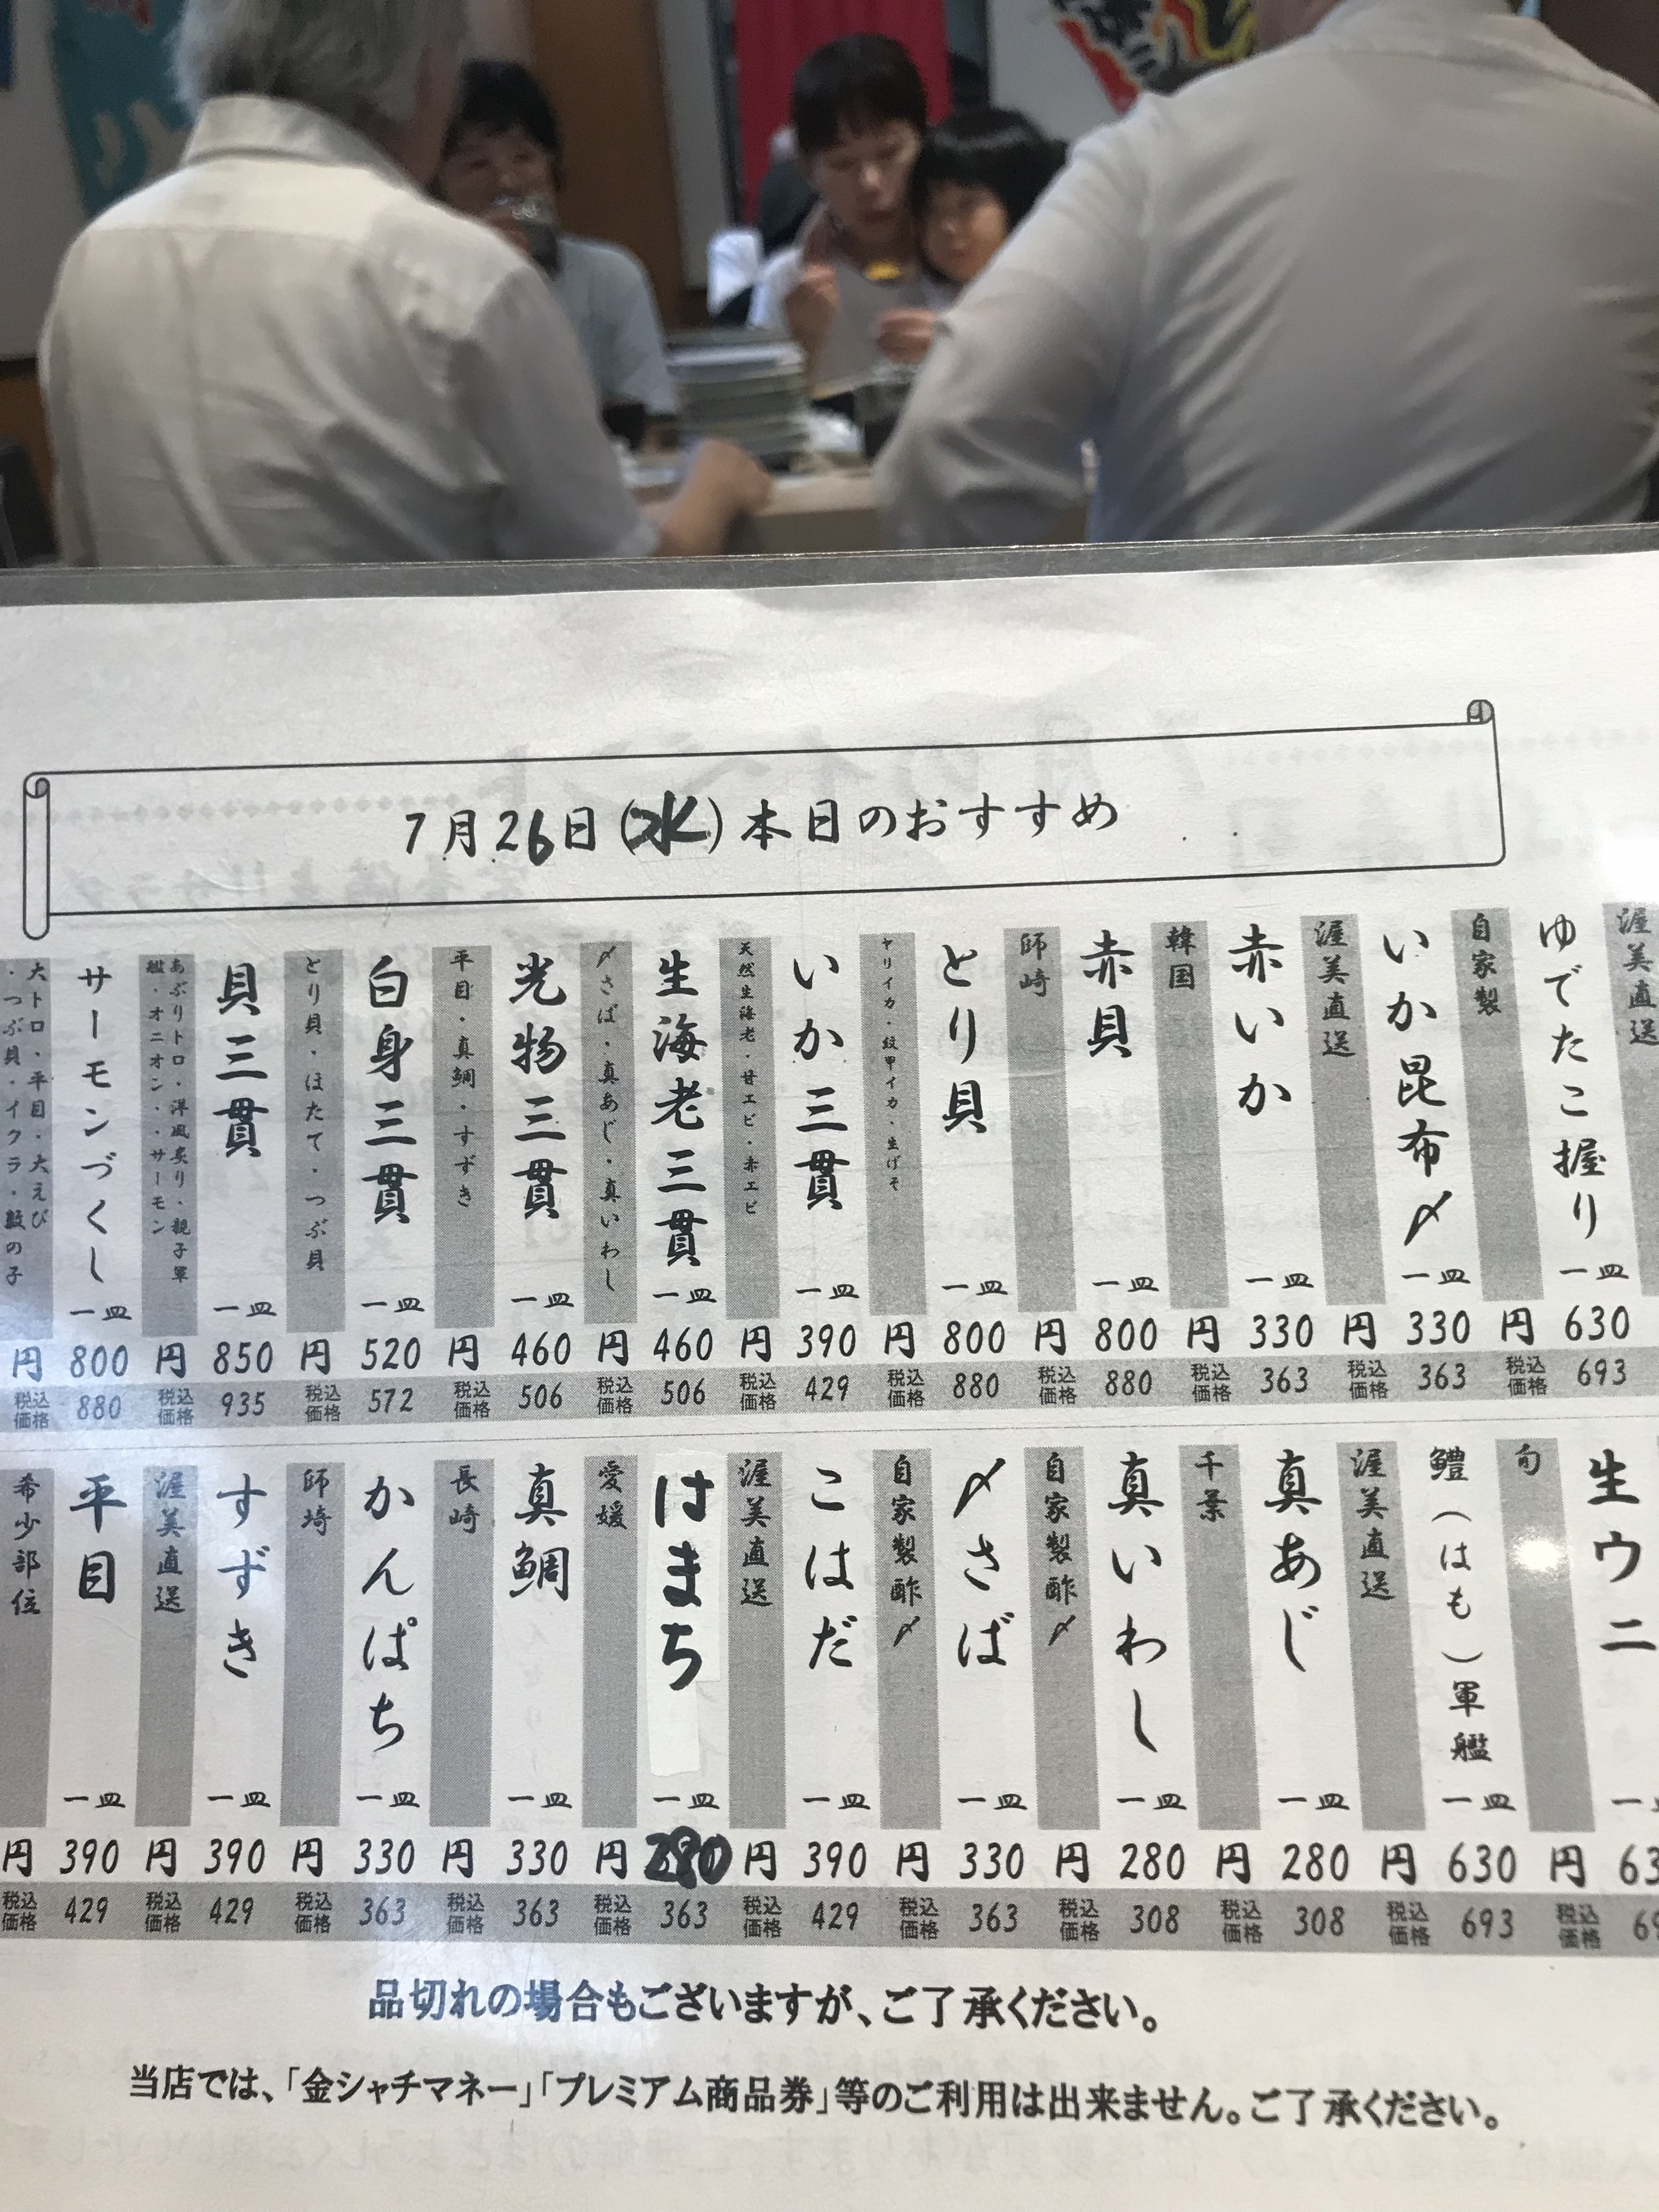 7月26日(水)本日のおすすめ
渥美直送
ゆでたこ握り 一皿 630円 税込価格 693
自家製
いか昆布〆 一皿 330円 税込価格 363
渥美直送
赤いか 一皿 330円 税込価格 363
韓国
赤貝 一皿 800円 税込価格 880
師崎
とり貝 一皿 800円 税込価格 880
ヤリイカ・紋甲イカ・生げそ
いか三貫 一皿 390円 税込価格 429
天然生海老・甘エビ・赤エビ
生海老三貫 一皿 460円 税込価格 506
〆さば・真あじ・真いわし
光物三貫 一皿 460円 税込価格 506
平目・真鯛・すずき
白身三貫 一皿 520円 税込価格 572
とり貝・ほたて・つぶ貝
貝三貫 一皿 850円 税込価格 935
あぶりトロ・洋風炙り・親子軍
艦・オニオン・・サーモン
サーモンづくし 一皿 800円 税込価格 880
大トロ・平目・大えび
・つぶ貝・イクラ・数の子
生ウニ
旬
鱧(はも)軍艦 一皿 630円 税込価格 693
渥美直送
真あじ 一皿 280円 税込価格 308
千葉
真いわし 一皿 280円 税込価格 308
自家製酢〆
〆さば 一皿 330円 税込価格 363
自家製酢〆
こはだ 一皿 390円 税込価格 429
渥美直送
はまち 一皿 280円 税込価格 363
愛媛
真鯛 一皿 330円 税込価格 363
長崎
かんぱち 一皿 330円 税込価格 363
師崎
すずき 一皿 390円 税込価格 429
渥美直送
平目 一皿 390円 税込価格 429
希少部位
品切れの場合もございますが、ご了承ください。
当店では、「金シャチマネー」「プレミアム商品券」等のご利用は出来ません。ご了承ください。